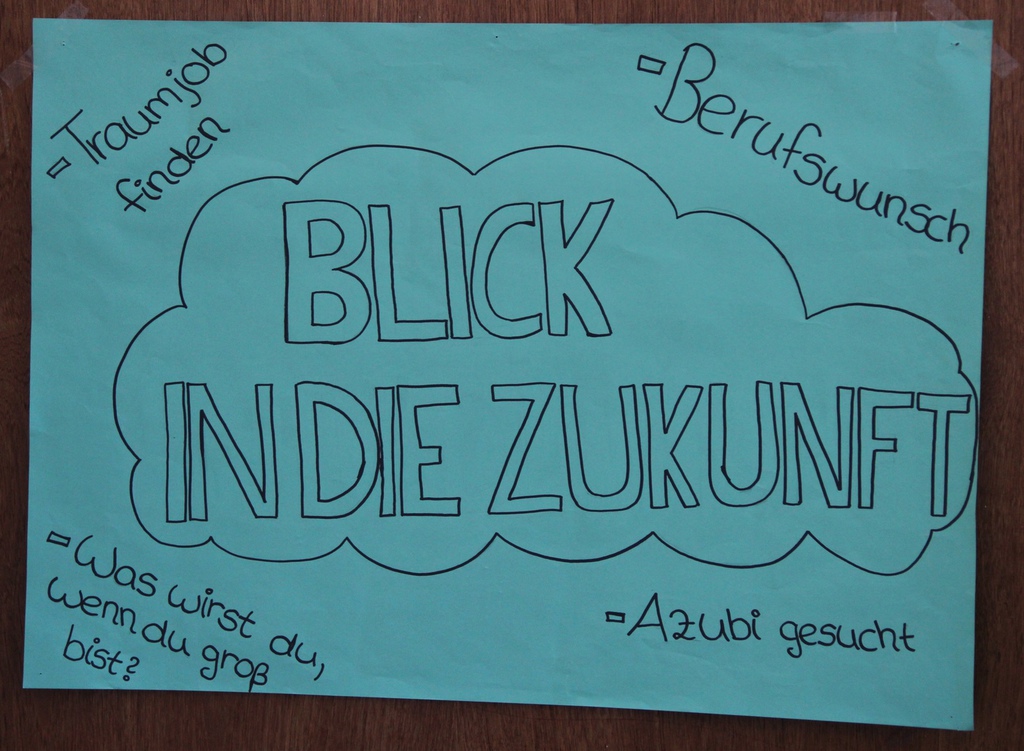 - Traumjob
finden
- Berufswunsch
BLICK
IN DIE ZUKUNFT
- Was wirst du,
wenn du groß
bist?
- Azubi gesucht